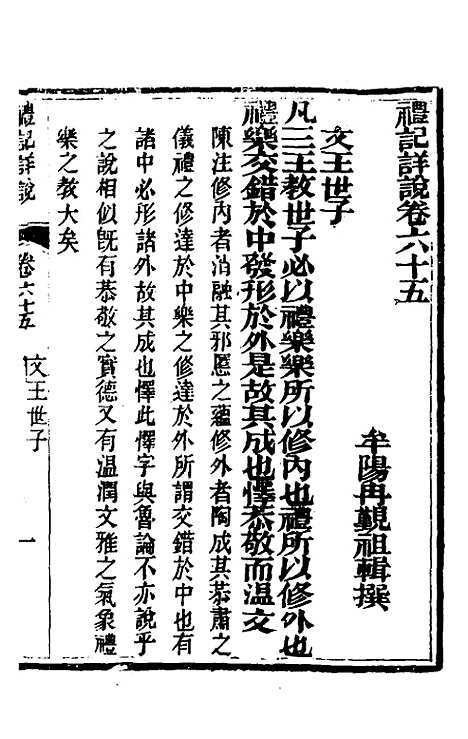 禮記詳說卷六十五
牟陽冉覲祖輯撰
文王世子
凡三王教世子必以禮樂樂所以修內也禮所以修外也
禮樂交錯於中發形於外是故其成也懌恭敬而溫文
陳注修內者消融其邪慝之蘊修外者陶成其恭肅之
儀禮之修達於中樂之修達於外所謂交錯於中也有
諸中必形諸外故其成也懌此懌字與魯論不亦說乎
之說相似旣有恭敬之實德又有溫潤文雅之氣象禮
樂之教大矣
禮記詳說
卷六十五
文王世子
一